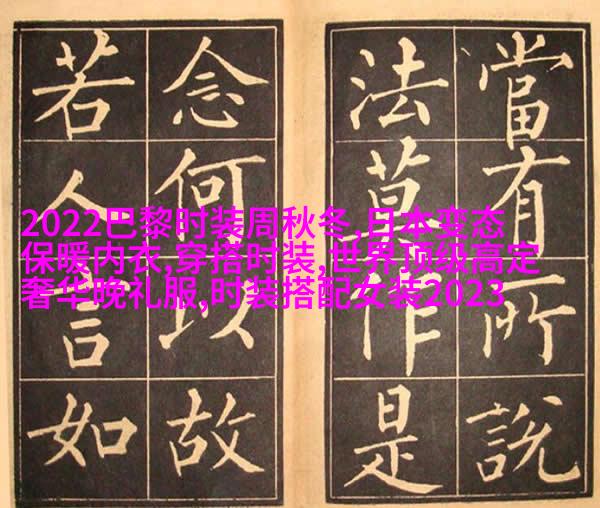 當有所說
法莫作是
念何以故
若人言如
2022巴黎时装周秋冬,日本变态
保暖内衣,穿搭时装,世界顶级高定
奢华晚礼服,时装搭配女装2023